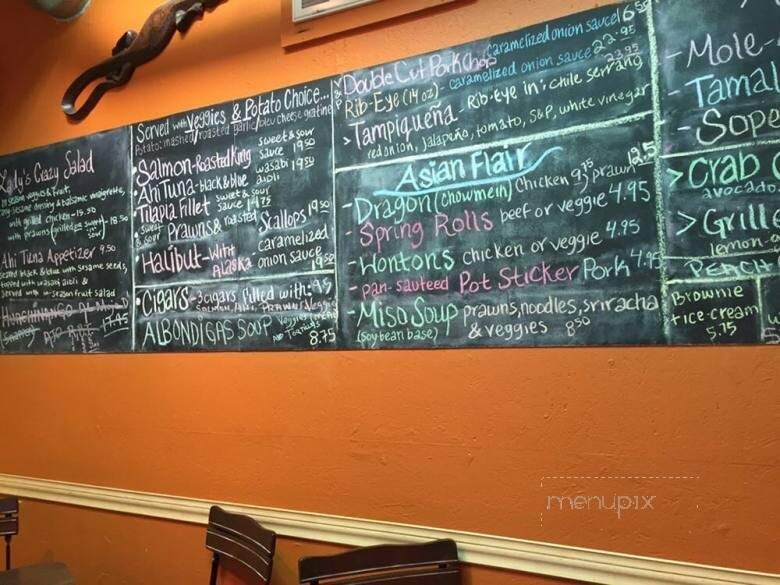 Lady's Crazy Salad
in season veggies & fruit,
sesame dressing & balsamic vinaigrette,
with grilled chicken - 15.50
with prawns (grilled or sweet & sour) - 18.50
Ahi Tuna Appetizer 9.50
seared black & blue with sesame seeds,
topped with wasabi aioli &
served with in-season fruit salad
17.45
Served with Veggies & Potato Choice...
Potato: mashed/roasted garlic/bleu cheese gratine
Salmon-Roasted King sweet & sour sauce 19.50
Ahi Tuna-black & blue wasabi aioli 19.50
Tilapia Fillet sweet & sour sauce 14.75
sweet & sour Prawns & roasted Scallops 19.50
Halibut-with Alaska caramelized onion sauce 19.50
Cigars -3 cigars filled with: 9.95
Salmon, Ahi, Prawn & Veggie
ALBONDIGAS SOUP 8.75
Double Cut Pork Chop caramelized onion sauce 16.50
Rib-Eye (14 oz)- caramelized onion sauce 22.95
> Tampiqueña - Rib-eye in: chile serrano 23.95
red onion, jalapeño, tomato, S&P, white vinegar
Asian Flair
-Dragon (chowmein) chicken 9.75 prawn 12.5
-Spring Rolls beef or veggie 4.95
-Wontons chicken or veggie 4.95
-pan-sauteed Pot Sticker Pork 4.95
-Miso Soup prawns, noodles, sriracha
(soybean base) & veggies 8.50
-Mole-
-Tamal
-Sope
>Crab C
avocado
>Grill
lemon-
PEACH
Brownie
+ice-cream
5.75
menupix